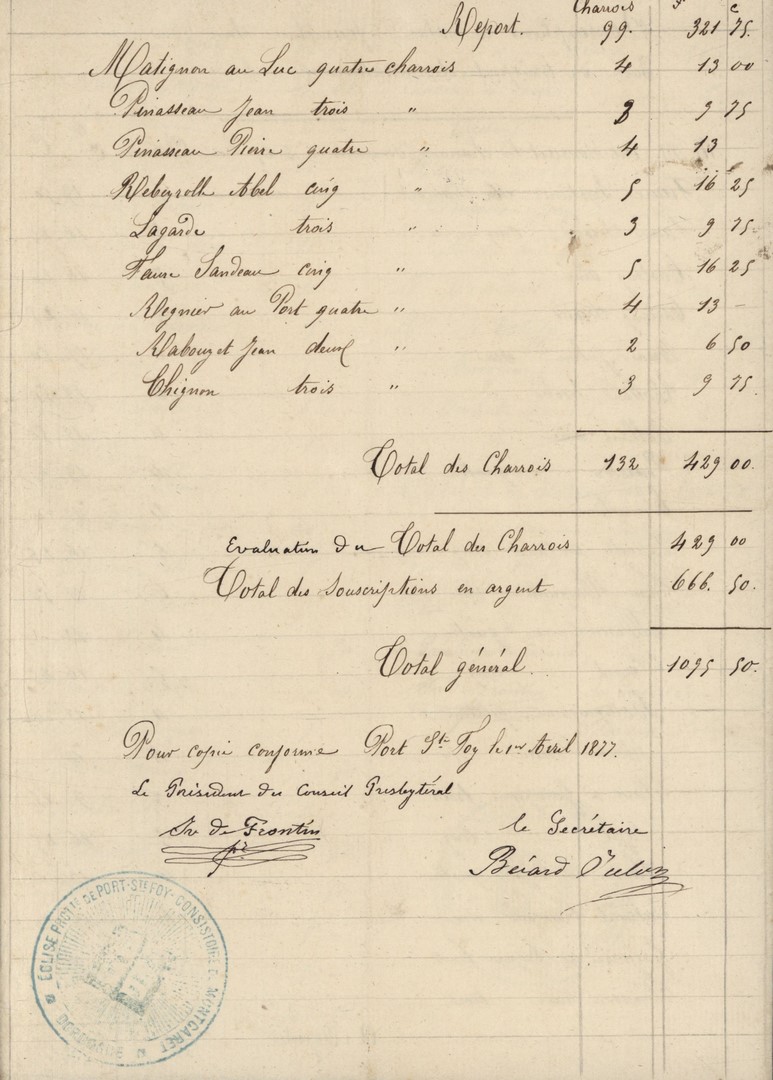 Charrois f c
Report. 99. 321 75.
Matignon au Luc quatre charrois 4 13 00
Pinasseau Jean trois " 3 9 75
Pinasseau Pierre quatre " 4 13
Rebeyrolle Abel cinq " 5 16 25
Lagarde trois " 3 9 75.
Faure Sandeau cinq " 5 16 25
Regnier au Port quatre " 4 13 –
Rabouzet Jean deux " 2 6 50
Chignon trois " 3 9 75.
Total des Charrois 132 429 00.
Evaluation du Total des Charrois 429 00
Total des souscriptions en argent 666. 50.
Total général. 1095 50.
Pour copie conforme Port Ste Foy le 1er Avril 1877.
Le Président du Conseil Presbytéral
le Secrétaire
de Frontin
Bérard
ÉGLISE PROTte DE PORT-Ste FOY-CONSISTOIRE DE MONTCARET
DORDOGNE